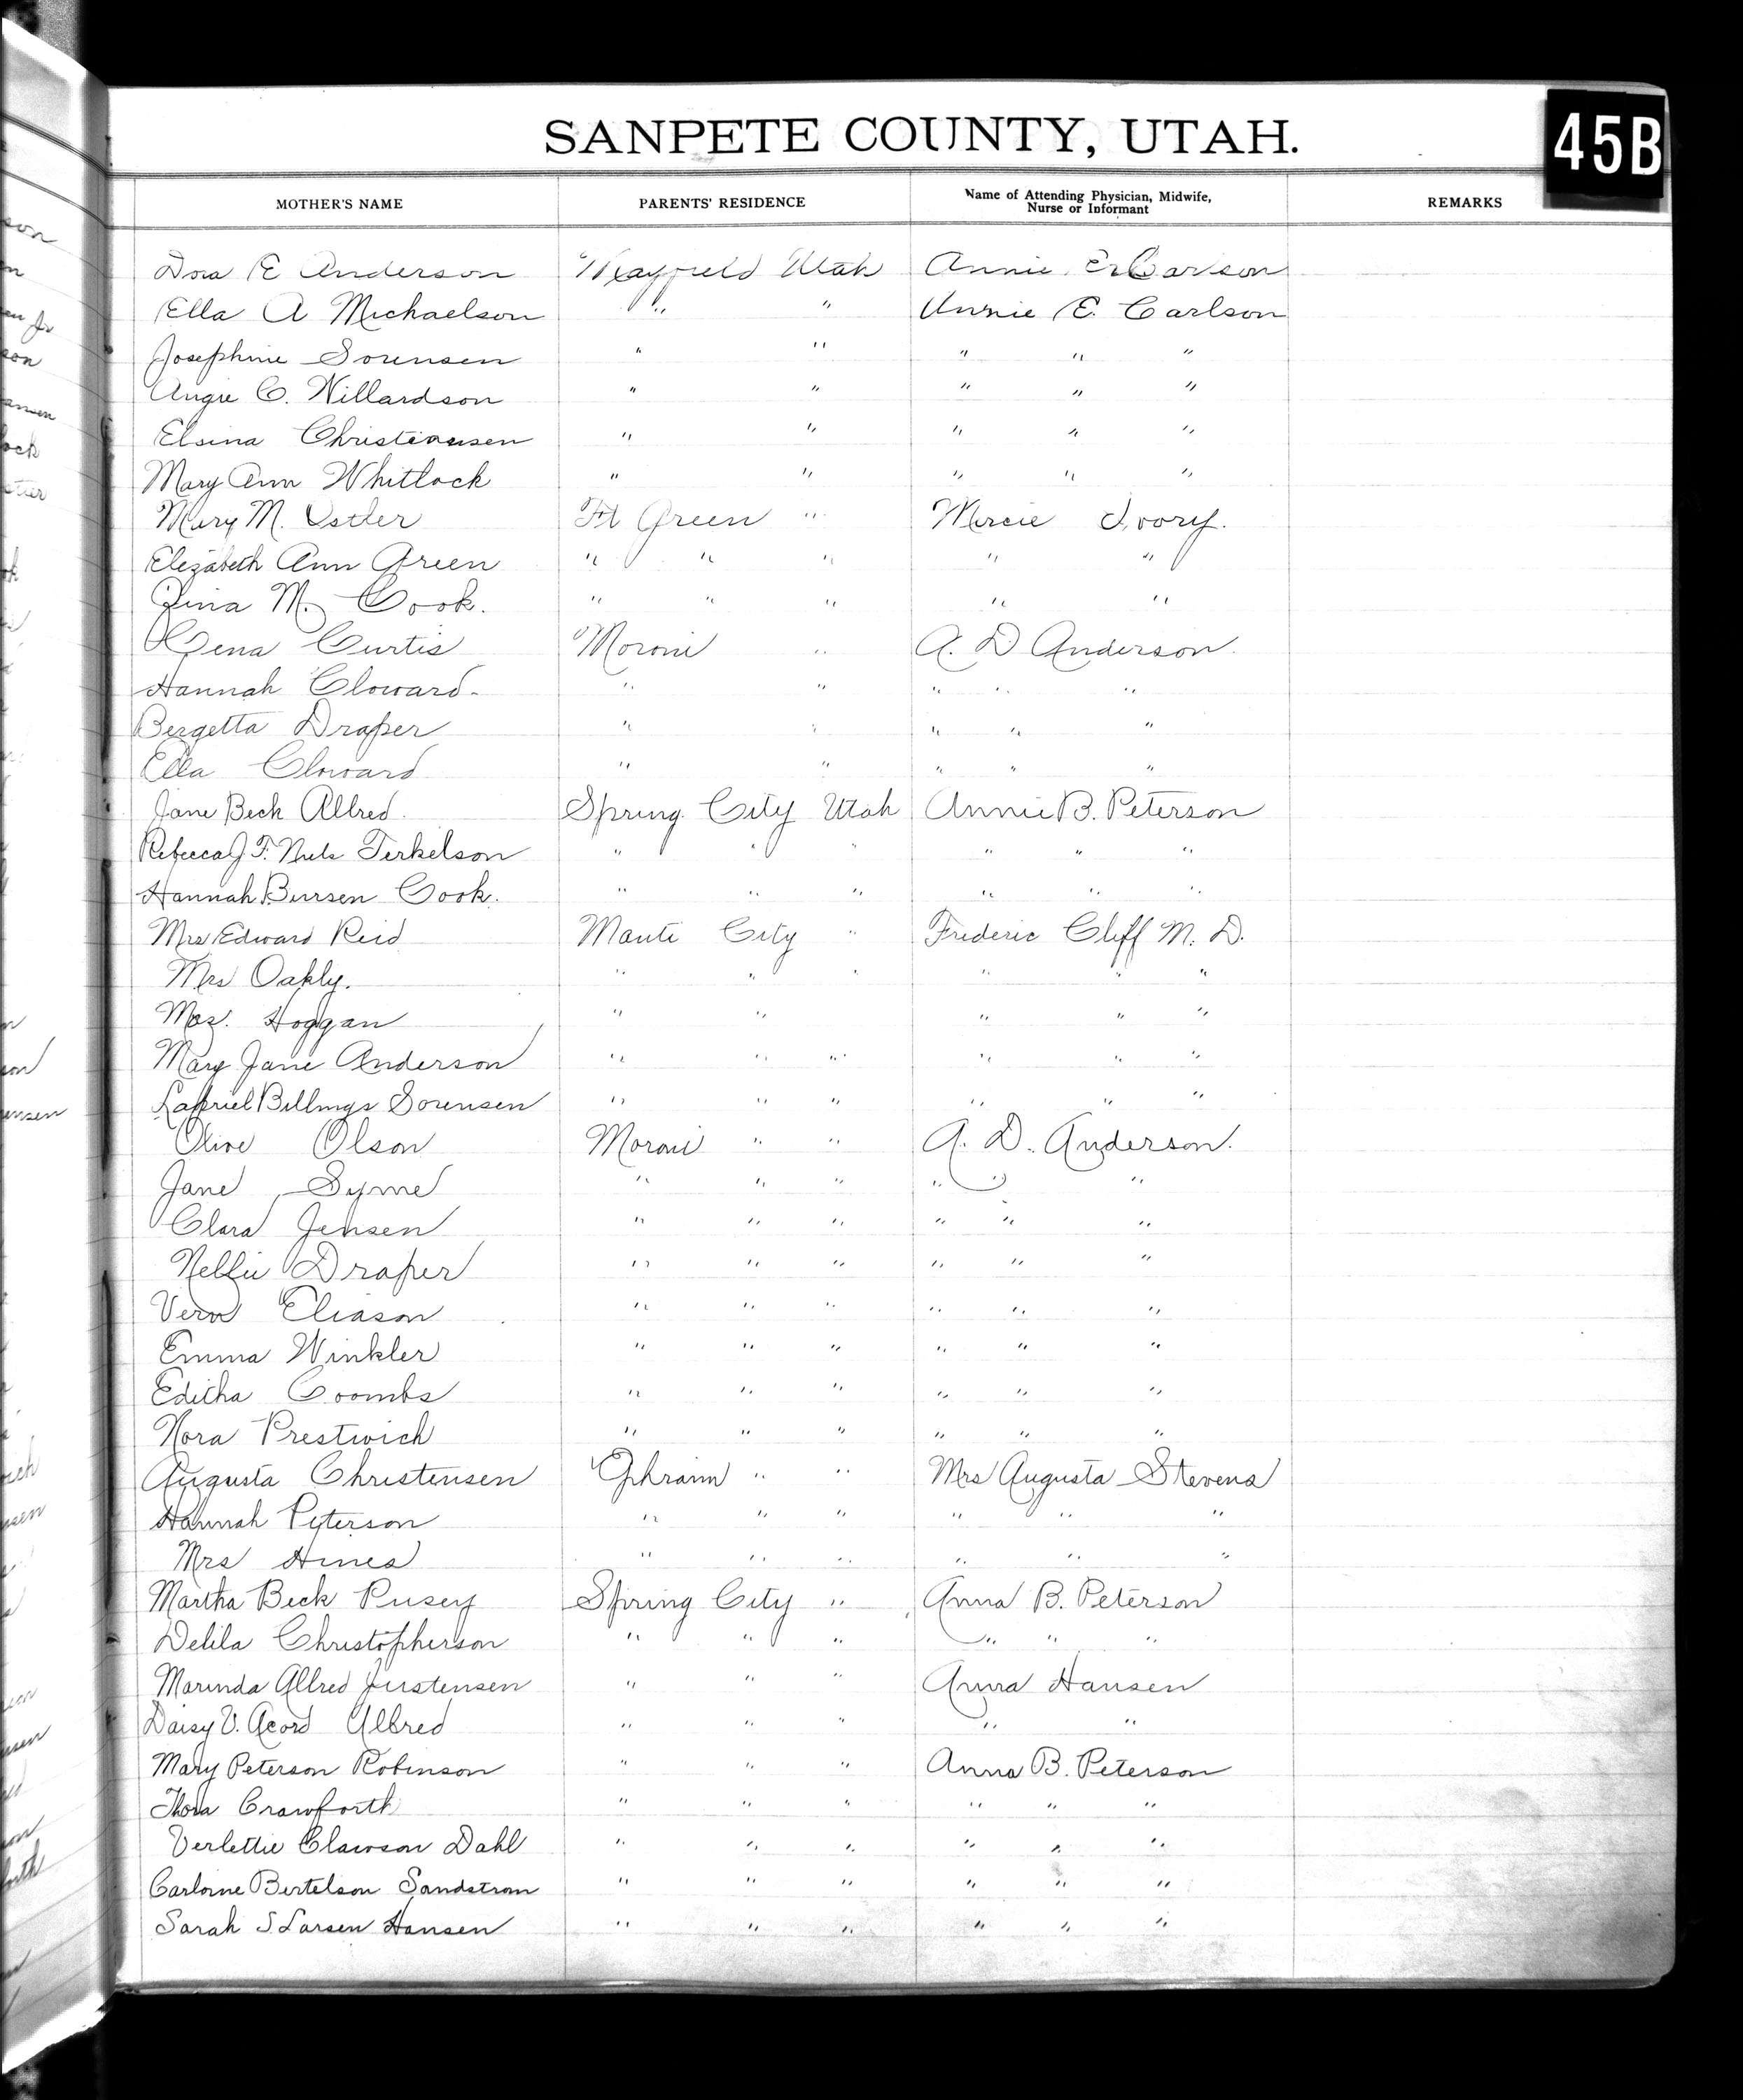 SANPETE COUNTY, UTAH.
45B
MOTHER'S NAME PARENTS' RESIDENCE Name of Attending Physician, Midwife, Nurse or Informant REMARKS
Dora E Anderson Mayfield Utah Annie E Carlson
Ella A Michaelson " " Annie E. Carlson
Josephine Sorensen " " " " "
Angie C. Willardson " " " " "
Elsina Christensen " " " " "
Mary Ann Whitlock " " " " "
Mary M. Ostler Ft Green " Mercie Ivory.
Elizabeth Ann Green " " " " "
Zina M. Cook. " " " " "
Cena Curtis Moroni " A. D Anderson.
Hannah Cloward " " " " "
Bergetta Draper " " " " "
Ella Cloward " " " " "
Jane Beck Allred. Spring City Utah Annie B. Peterson
Rebecca J. F. Terkelson " " " " " "
Hannah Cook. " " " " " "
Mrs Edward Reid Manti City " Frederic Cliff M. D.
Mrs Oakly. " " " " " "
Mrs. Hoggan " " " " "
Mary Jane Anderson " " " " " "
Billings Sorensen " " " " " "
Olive Olson Moroni " " A. D. Anderson.
Jane Syme " " " " "
Clara Jensen " " " " " "
Nellie Draper " " " " " "
Vern Eliason " " " " " "
Emma Winkler " " " " " "
Editha Coombs " " " " " "
Nora Prestwich " " " " " "
Augusta Christensen Ephraim " " Mrs Augusta Stevens
Hannah Peterson " " " " " "
Mrs Hines " " " " " "
Martha Beck Pusey Spring City " Anna B. Peterson
Delila Christopherson " " " " " "
Marinda Allred Justensen " " " Anna Hansen
Daisy V. Acord Allred " " " " "
Mary Peterson Robinson " " " Anna B. Peterson
Thora Crawforth " " " " " "
Verlettie Clawson Dahl " " " " " "
Carloine Bertelson Sandstrom " " " " " "
Sarah S Larsen Hansen " " " " " "